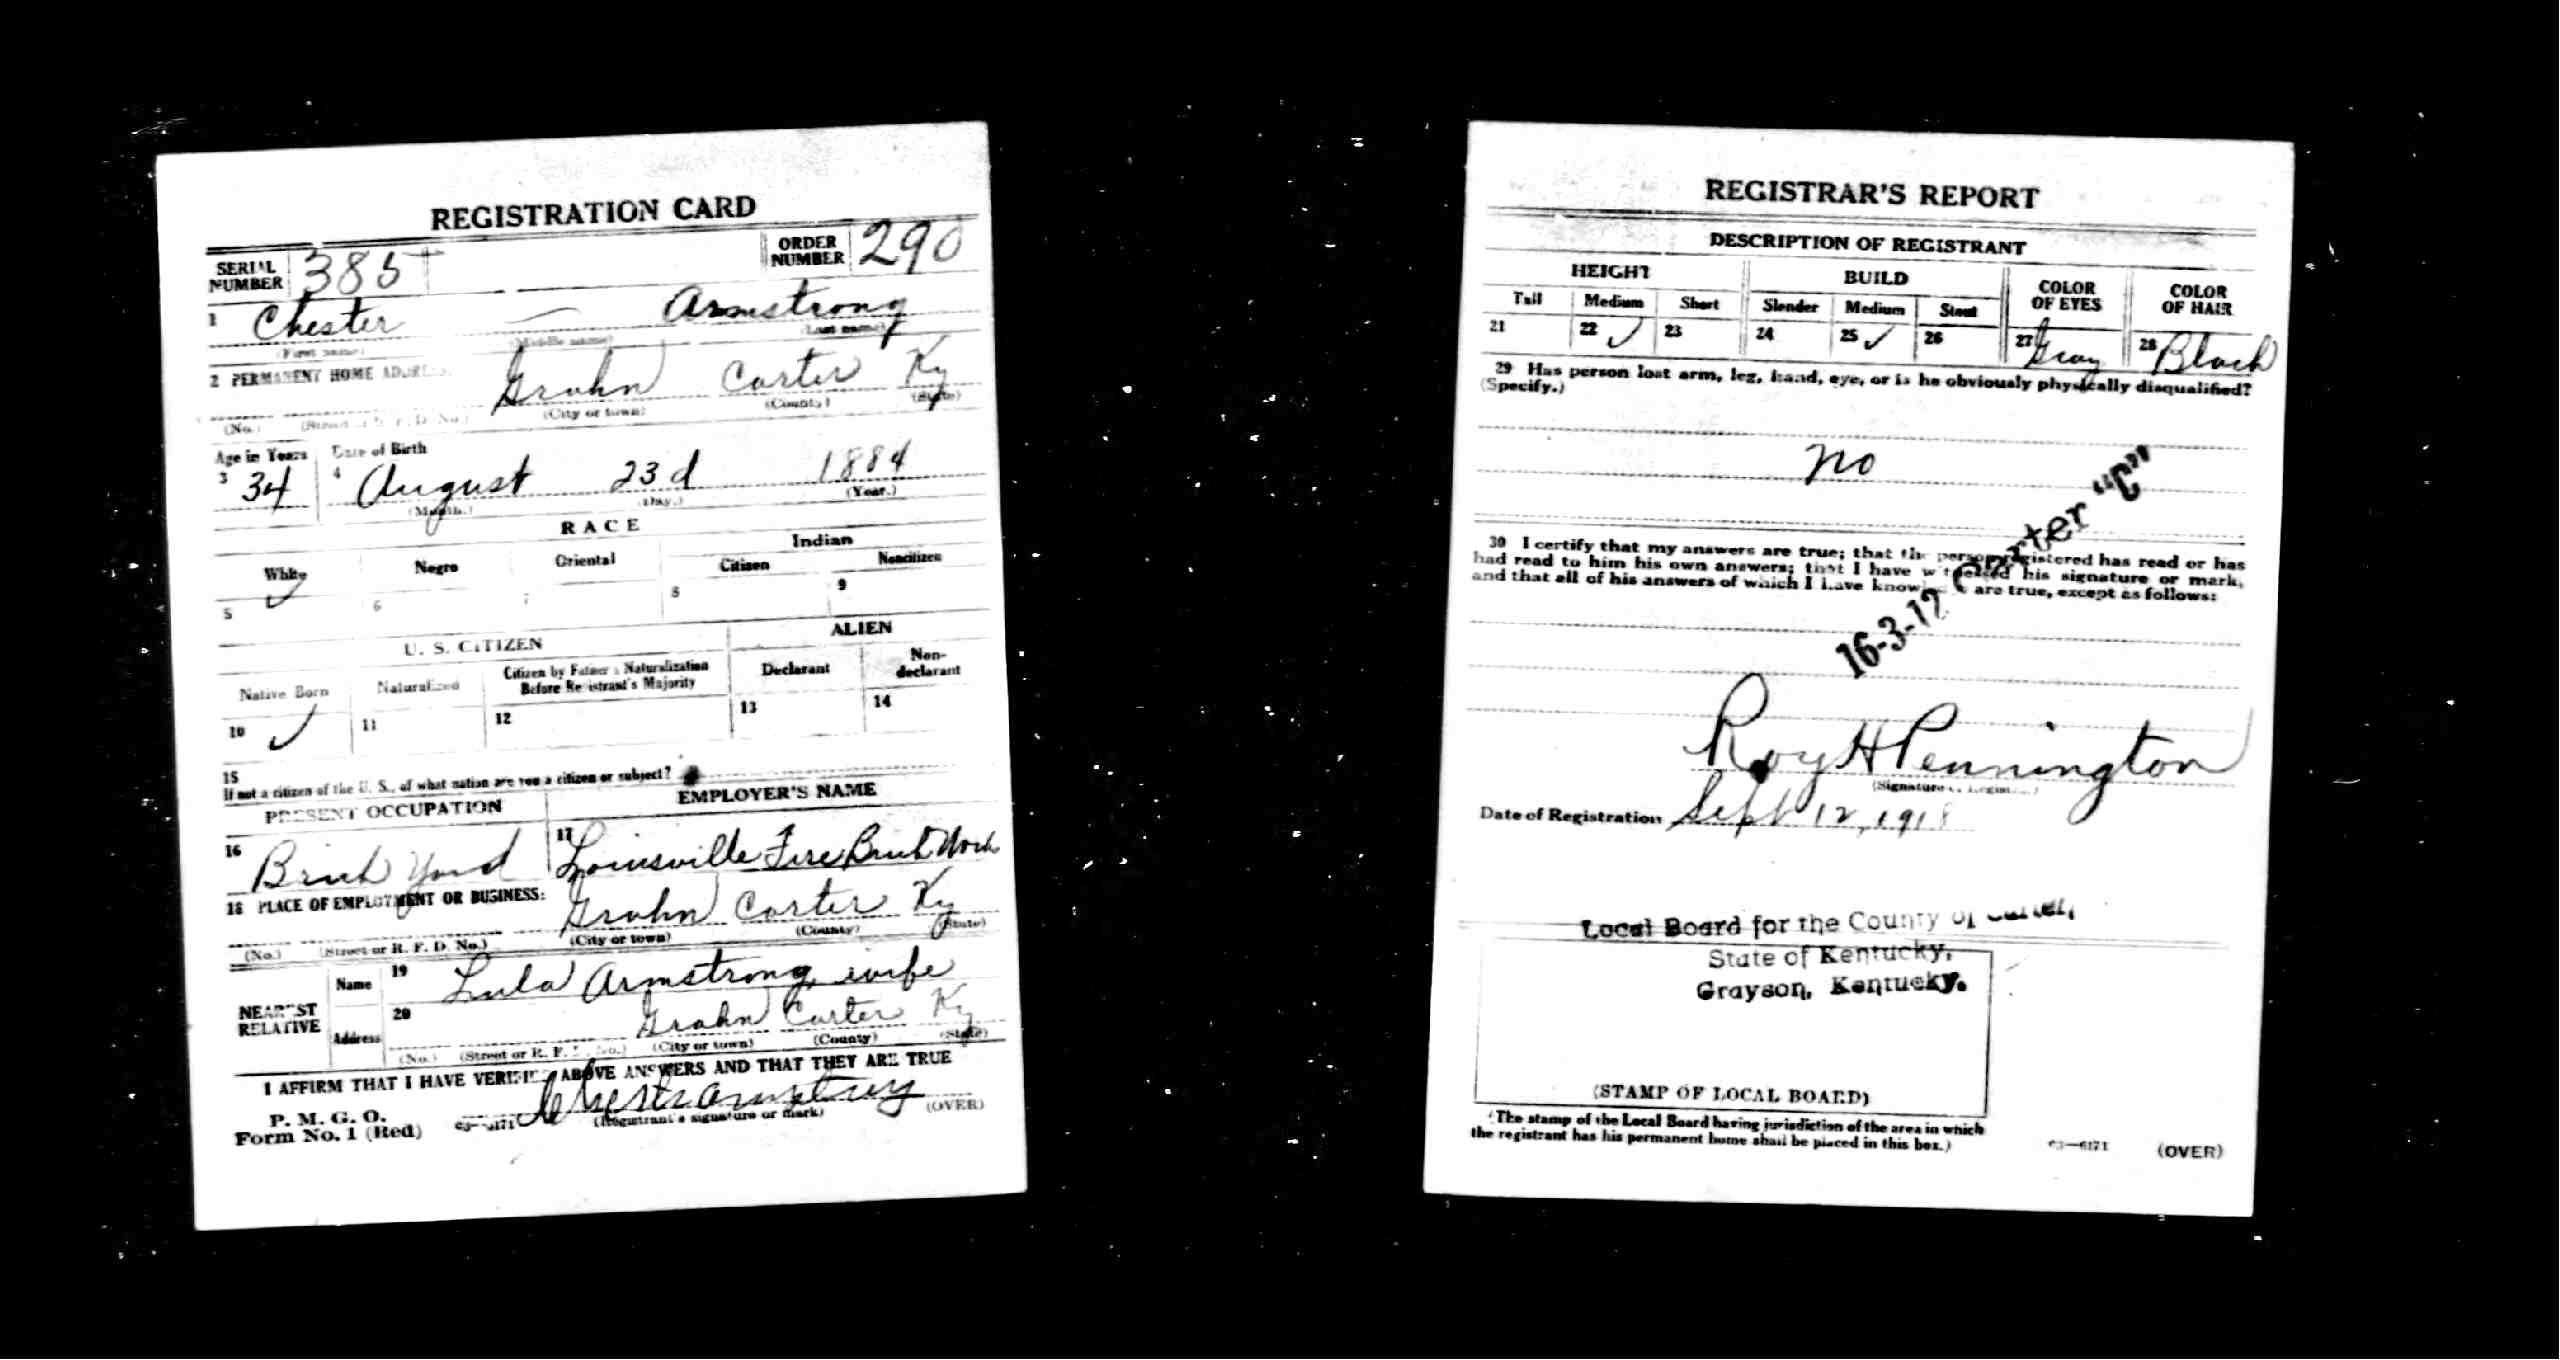 REGISTRATION CARD
SERIAL NUMBER 385 ORDER NUMBER 290
1 Chester — Armstrong
(First name) (Middle name) (Last name)
2 PERMANENT HOME ADDRESS:
Grahn Carter Ky
(No.) (Street or R. F. D. No.) (City or town) (County) (State)
Age in Years Date of Birth
3 34 4 August 23d 1884
(Month.) (Day.) (Year.)
RACE
White Negro Oriental Indian
Citizen Noncitizen
5 ✓ 6 7 8 9
U. S. CITIZEN ALIEN
Native Born Naturalized Citizen by Father's Naturalization Before Registrant's Majority Declarant Non-declarant
10 ✓ 11 12 13 14
15
If not a citizen of the U. S., of what nation are you a citizen or subject?
PRESENT OCCUPATION EMPLOYER'S NAME
16 Brick Yard 17 Louisville Fire Brick Work
18 PLACE OF EMPLOYMENT OR BUSINESS:
Grahn Carter Ky
(No.) (Street or R. F. D. No.) (City or town) (County) (State)
NEAREST RELATIVE
Name 19 Lula Armstrong, wife
Address 20 Grahn Carter Ky
(No.) (Street or R. F. D. No.) (City or town) (County) (State)
I AFFIRM THAT I HAVE VERIFIED ABOVE ANSWERS AND THAT THEY ARE TRUE
P. M. G. O.
Form No. 1 (Red) 03—6171 Chester Armstrong (OVER)
(Registrant's signature or mark)
REGISTRAR'S REPORT
DESCRIPTION OF REGISTRANT
HEIGHT BUILD COLOR OF EYES COLOR OF HAIR
Tall Medium Short Slender Medium Stout
21 22 ✓ 23 24 25 ✓ 26 27 Gray 28 Black
29 Has person lost arm, leg, hand, eye, or is he obviously physically disqualified?
(Specify.)
No
30 I certify that my answers are true; that the person registered has read or has
had read to him his own answers; that I have witnessed his signature or mark,
and that all of his answers of which I have knowledge are true, except as follows:
16-3-17 Carter "C"
Roy H Pennington
(Signature of Registrar)
Date of Registration Sept 12, 1918
Local Board for the County of Carter,
State of Kentucky,
Grayson, Kentucky.
(STAMP OF LOCAL BOARD)
(The stamp of the Local Board having jurisdiction of the area in which
the registrant has his permanent home shall be placed in this box.)
03—6171 (OVER)